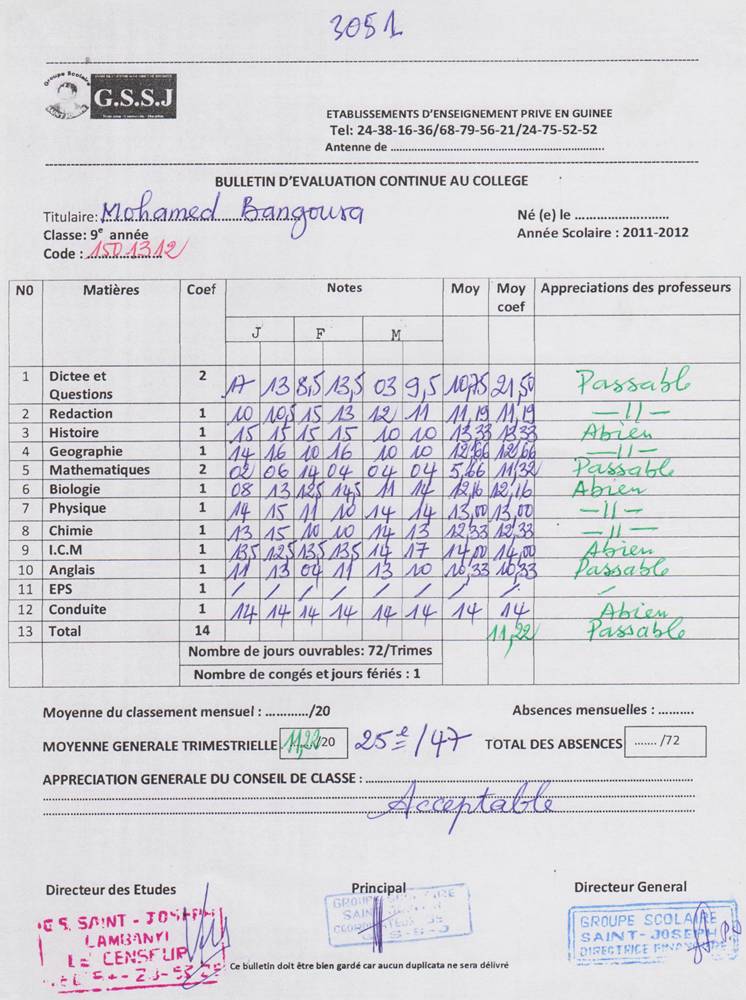 3051
Groupe Scolaire
G.S.S.J
ETABLISSEMENTS D'ENSEIGNEMENT PRIVE EN GUINEE
Tel: 24-38-16-36/68-79-56-21/24-75-52-52
Antenne de ...
BULLETIN D'EVALUATION CONTINUE AU COLLEGE
Titulaire: Mohamed Bangoura Né (e) le ...
Classe: 9e année Année Scolaire : 2011-2012
Code : 1501312
N0 Matières Coef Notes Moy Moy coef Appreciations des professeurs
J F M
1 Dictee et Questions 2 17 13 8,5 13,5 03 9,5 10,75 21,50 Passable
2 Redaction 1 10 10,5 15 13 12 11 11,19 11,19 —//—
3 Histoire 1 15 15 15 15 10 10 13,33 13,33 Abien
4 Geographie 1 14 16 10 16 10 10 12,66 12,66 —//—
5 Mathematiques 2 02 06 14 04 04 04 5,66 11,32 Passable
6 Biologie 1 08 13 12,5 14,5 11 14 12,16 12,16 Abien
7 Physique 1 14 15 11 10 14 14 13,00 13,00 —//—
8 Chimie 1 13 15 10 10 14 13 12,33 12,33 —//—
9 I.C.M 1 13,5 12,5 13,5 13,5 14 17 14,00 14,00 Abien
10 Anglais 1 11 13 04 11 13 10 10,33 10,33 Passable
11 EPS 1 / / / / / / / / /
12 Conduite 1 14 14 14 14 14 14 14 14 Abien
13 Total 14 11,22 Passable
Nombre de jours ouvrables: 72/Trimes
Nombre de congés et jours fériés : 1
Moyenne du classement mensuel : ............/20 Absences mensuelles : ..........
MOYENNE GENERALE TRIMESTRIELLE 11,22/20 25e/47 TOTAL DES ABSENCES ....... /72
APPRECIATION GENERALE DU CONSEIL DE CLASSE : ...
Acceptable
Directeur des Etudes Principal Directeur General
G.S. SAINT - JOSEPH
LAMBANYI
LE CENSEUR
GROUPE SCOLAIRE
SAINT-JOSEPH
DIRECTRICE
Ce bulletin doit être bien gardé car aucun duplicata ne sera délivré